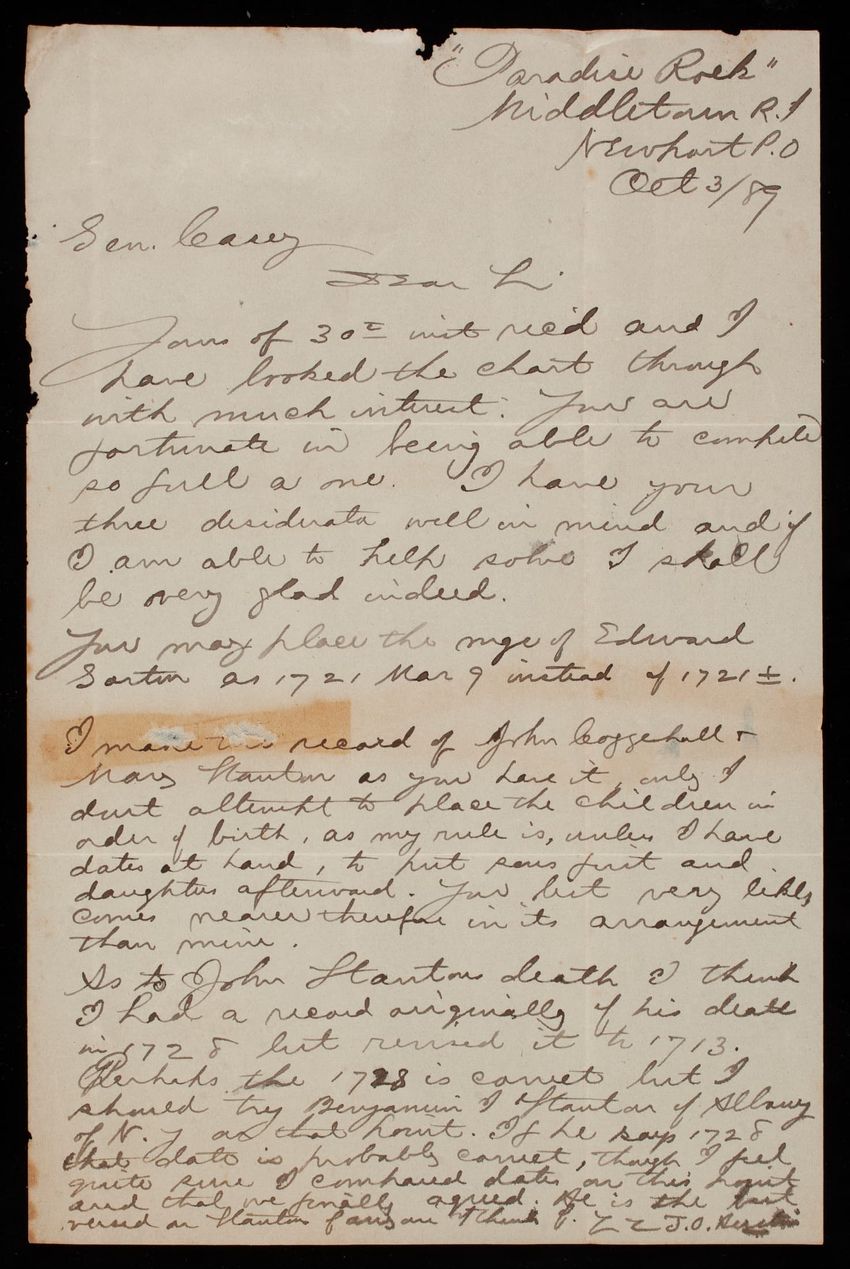 "Paradise Rock"
Middletown R.I
Newport P.O
Oct 3/89
Gen. Casey
Dear Sir
Yours of 30th inst rec'd and I
have looked the chart through
with much interest. You are
fortunate in being able to compile
so full a one. I have your
three desiderata well in mind and if
I am able to help solve I shall
be very glad indeed.
You may place the mge of Edward
Gorton as 1721 Mar 9 instead of 1721 ±.
I make the record of John Coggeshall &
Mary Stanton as you have it, only I
dont attempt to place the children in
order of birth, as my rule is, unless I have
dates at hand, to put sons first and
daughters afterward. Your list very likely
comes nearer therefore in its arrangement
than mine.
As to John Stantons death I think
I had a record originally of his death
in 1728 but revised it to 1713.
Perhaps the 1728 is correct but I
should try Benjamin I Stanton of Albany
of N. Y on that point. If he says 1728
that date is probably correct, though I feel
quite sure I compared dates on this point
and that we finally agreed. He is the best
versed on Stanton family one I think J.O. Austin